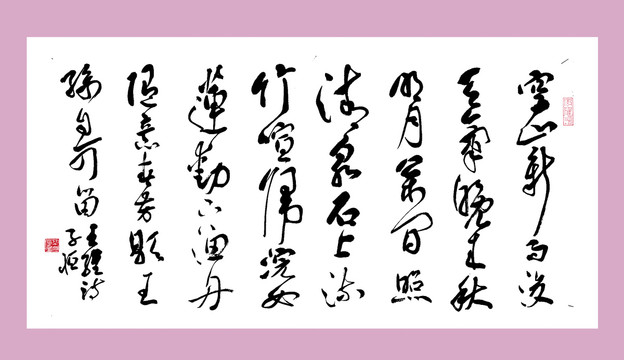 空山新雨後
天氣晚來秋
明月松間照
清泉石上流
竹喧歸浣女
蓮動下漁舟
隨意春芳歇王
孫自可留
王維詩